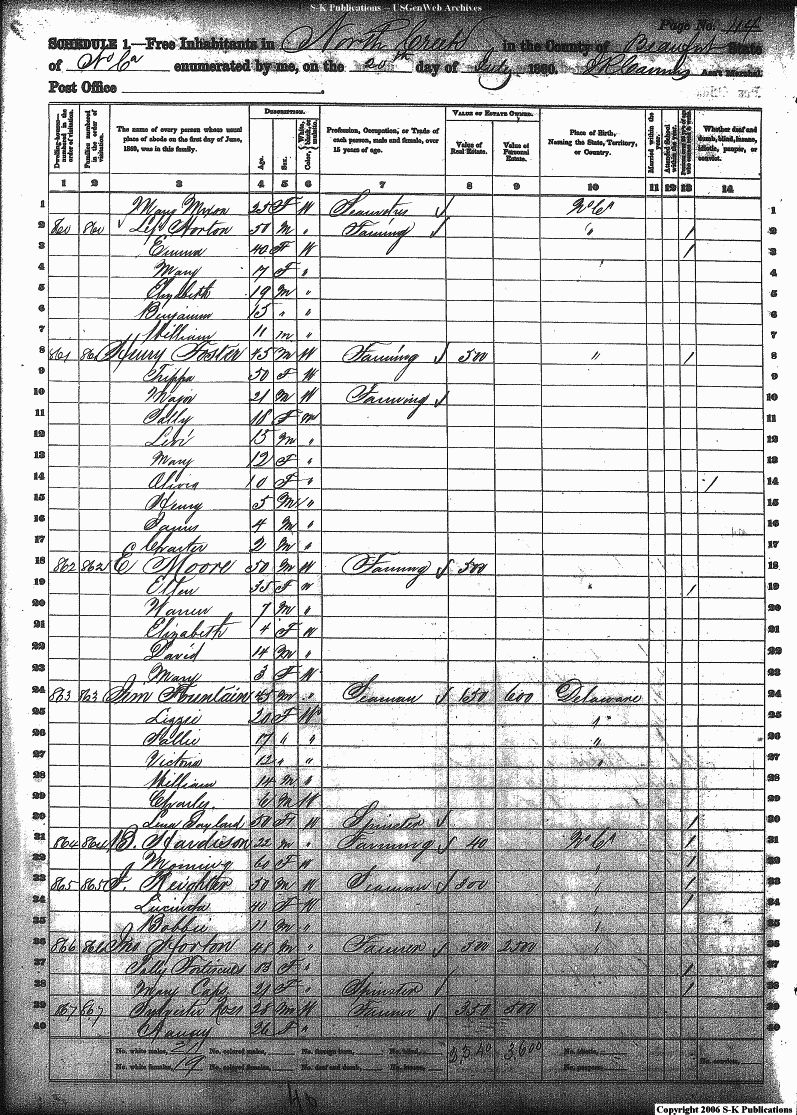 S-K Publications – USGenWeb Archives
Page No. 114
SCHEDULE 1.—Free Inhabitants in North Creek in the County of Beaufort State
of No Ca enumerated by me, on the 20th day of July 1860. Ass't Marshal.
Post Office
Dwelling-houses—numbered in the order of visitation.
Families numbered in the order of visitation.
The name of every person whose usual place of abode on the first day of June, 1860, was in this family.
DESCRIPTION.
Age.
Sex.
Color, White, black, or mulatto.
Profession, Occupation, or Trade of each person, male and female, over 15 years of age.
VALUE OF ESTATE OWNED.
Value of Real Estate.
Value of Personal Estate.
Place of Birth, Naming the State, Territory, or Country.
Married within the year.
Attended School within the year.
Whether deaf and dumb, blind, insane, idiotic, pauper, or convict.
1 2 3 4 5 6 7 8 9 10 11 12 13 14
1 Mary Mixon 25 F W Seamstres No Ca 1
2 860 860 Norton 50 M " Farming " / 2
3 Emma 40 F W / 3
4 Mary 17 F " 4
5 Elizabeth 19 M " 5
6 Benjamin 15 " " 6
7 William 11 M " 7
8 861 861 Henry Foster 45 M W Farming 500 " / 8
9 Trippa 50 F W 9
10 Major 21 M W Farming 10
11 Sally 18 F 11
12 Levi 15 M " 12
13 Mary 12 F " 13
14 Olivia 10 F " / 14
15 Henry 5 M " 15
16 James 4 M " 16
17 2 M " 17
18 862 862 E Moore 50 M W Farming 500 18
19 Ellen 35 F W " / 19
20 Warren 7 M " 20
21 Elizabeth 4 F W 21
22 David 14 M " 22
23 Mary 3 F W 23
24 863 863 Jim Fountain 45 M " Seaman 650 600 Delaware 24
25 Lizzie 20 F W " 25
26 Sallie 17 " " " 26
27 Victoria 12 " " " 27
28 William 14 M " 28
29 Charles 6 M W 29
30 Lina Gaylard 50 F W Spinster / 30
31 864 864 B. Hardieson 22 M " Farming 40 No Ca / 31
32 Morning 60 F W " / 32
33 865 865 Keighter 50 M W Seaman 300 " / 33
34 Lucinda 40 F W " / 34
35 Bobbie 11 M " 35
36 866 866 Jno Horton 48 M " Farmer 500 2500 36
37 Sally 53 F " / 37
38 Mary Caps 21 F " Spinster / 38
39 867 867 Sylvester Ross 28 M W Farmer 350 500 39
40 Nancy 26 F " 40
No. white males, 21 No. colored males, No. foreign born, No. blind, 3600 No. idiotic,
No. white females, 19 No. colored females, No. deaf and dumb, No. insane, No. paupers, No. convicts,
Copyright 2006 S-K Publications